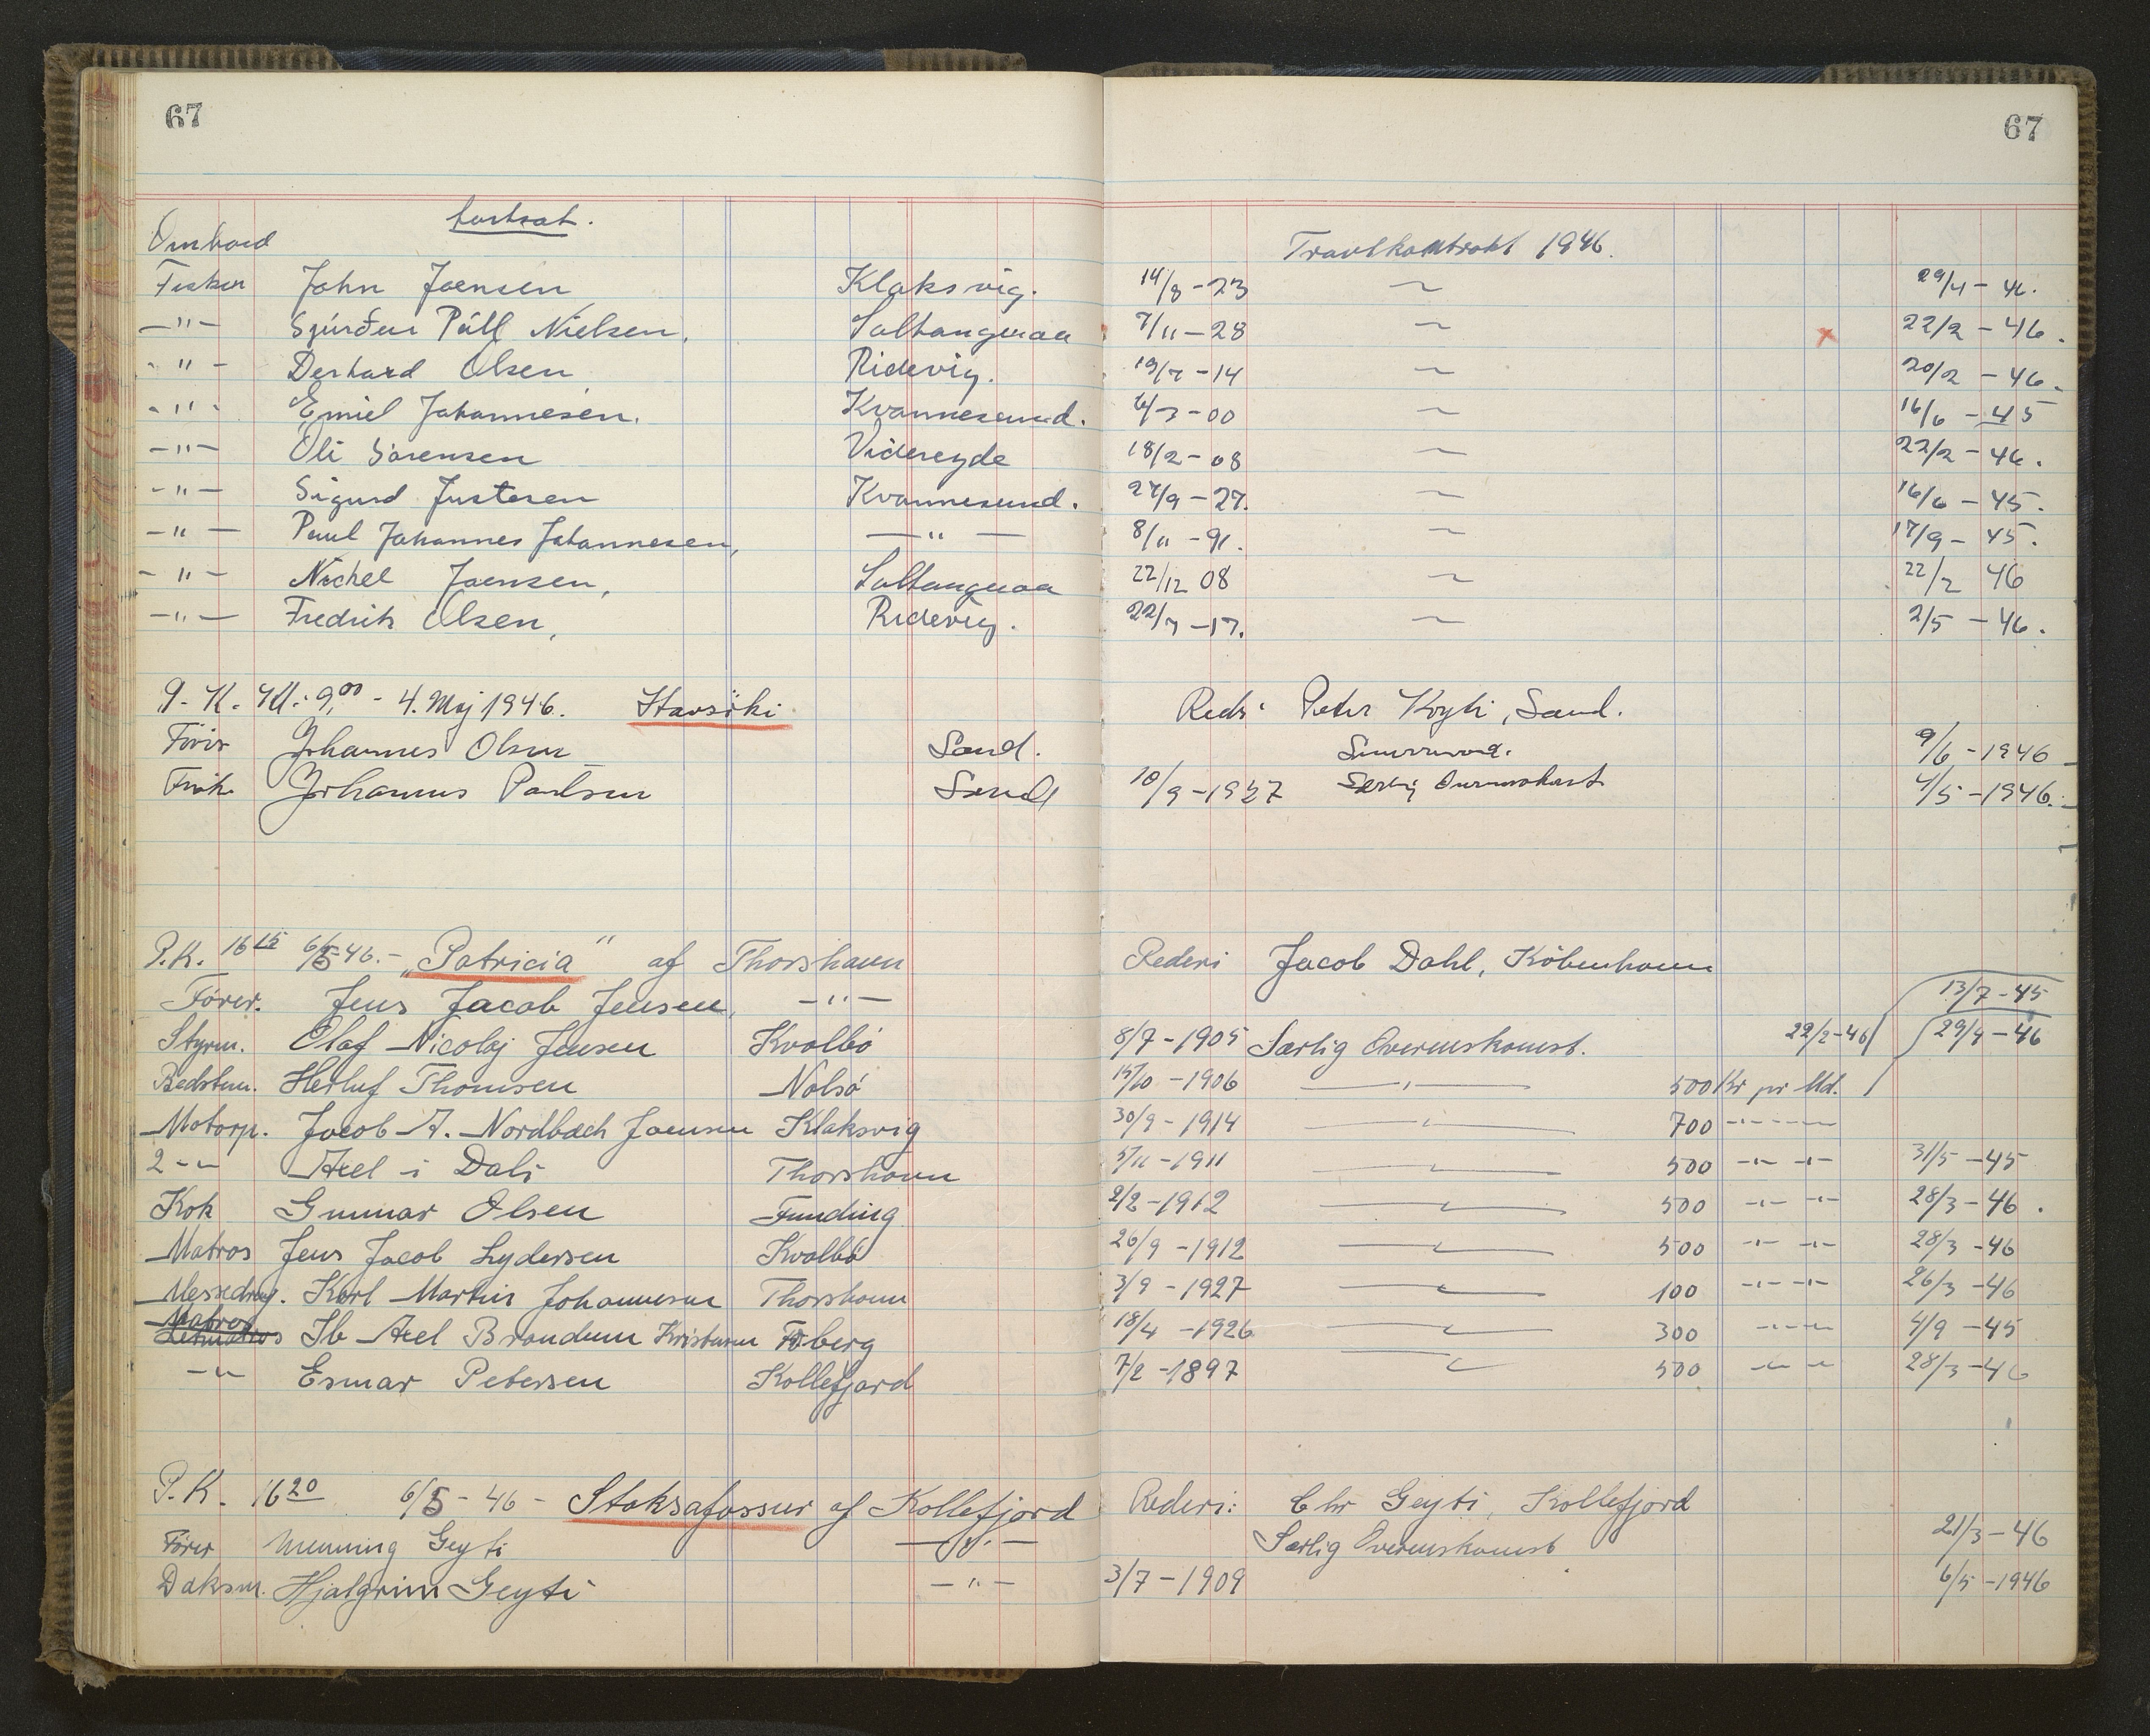 67 67
fortsat.
Ombord Trawlkontrakt 1946.
Fisker John Joensen Klaksvig. 14/8-23 〃 29/4-46.
-"- Sjúrður Páll Nielsen, Saltangeraa 7/11-28 〃 x 22/2-46.
-"- Derhard Olsen Ridevig. 19/7-14 〃 20/2-46.
-"- Emiel Johannesen. Kvannesund. 6/3-00 〃 16/6-45
-"- Oli Sörensen Videreyde 18/2-08 〃 22/2-46.
-"- Sigurd Justesen Kvannesund. 27/9-27. 〃 16/6-45.
-"- Paul Johannes Johannesen, -"- 8/11-91. 〃 17/9-45.
-"- Nichel Joensen, Saltangeraa 22/12 08 〃 22/2 46
-"- Fredrik Olsen, Ridevig. 22/7-17. 〃 2/5-46.
P.K. Kl: 9,00 - 4. Maj 1946. Red: Peter Kryti, Sand.
Förer Johannes Olsen Sand. 9/6-1946
Johannes Poulsen Sand 10/9-1927 Særlig Overenskomst 4/5-1946.
P.K. 16 15 6/5 46.- „Patricia" af Thorshavn Rederi Jacob Dahl, Köbenhavn
Förer. Jens Jacob Jensen, -"- 13/7-45
Styrm. Olaf Nicolaj Jensen Kvalbö 8/7-1905 Særlig Overenskomst. 22/2-46 29/4-46
Bedstm. Herluf Thomsen Nolsö 15/10-1906 -"- 500 Kr pr Md.
Motorp. Jacob A. Nordbach Joensen Klaksvig 30/9-1914 -"- 700 -"-
2 -"- Axel i Dali Thorshavn 5/11-1911 -"- 500 -"- -"- 31/5-45
Kok Gunnar Olsen Funding 2/2-1912 -"- 500 -"- -"- 28/3-46.
Matros Jens Jacob Lydersen Kvalbö 26/9-1912 -"- 500 -"- -"- 28/3-46
Messedrg. Karl Martin Johannesen Thorshavn 3/9-1927 -"- 100 -"- -"- 26/3-46
Matros
Letmatros Ib Axel Brandum Kristensen 18/4-1926 -"- 300 -"- 4/9-45
-"- Esmar Petersen Kollefjord 7/2-1897 -"- 500 -"- -"- 28/3-46
P.K. 16 20 6/5-46 - Stoksafossur af Kollefjord Rederi: Chr Geyti, Kollefjord
Förer Mumming Geyti -"- Særlig Overenskomst 21/3-46
Dæksm. Hjalgrim Geyti -"- 3/7-1909 6/5-1946